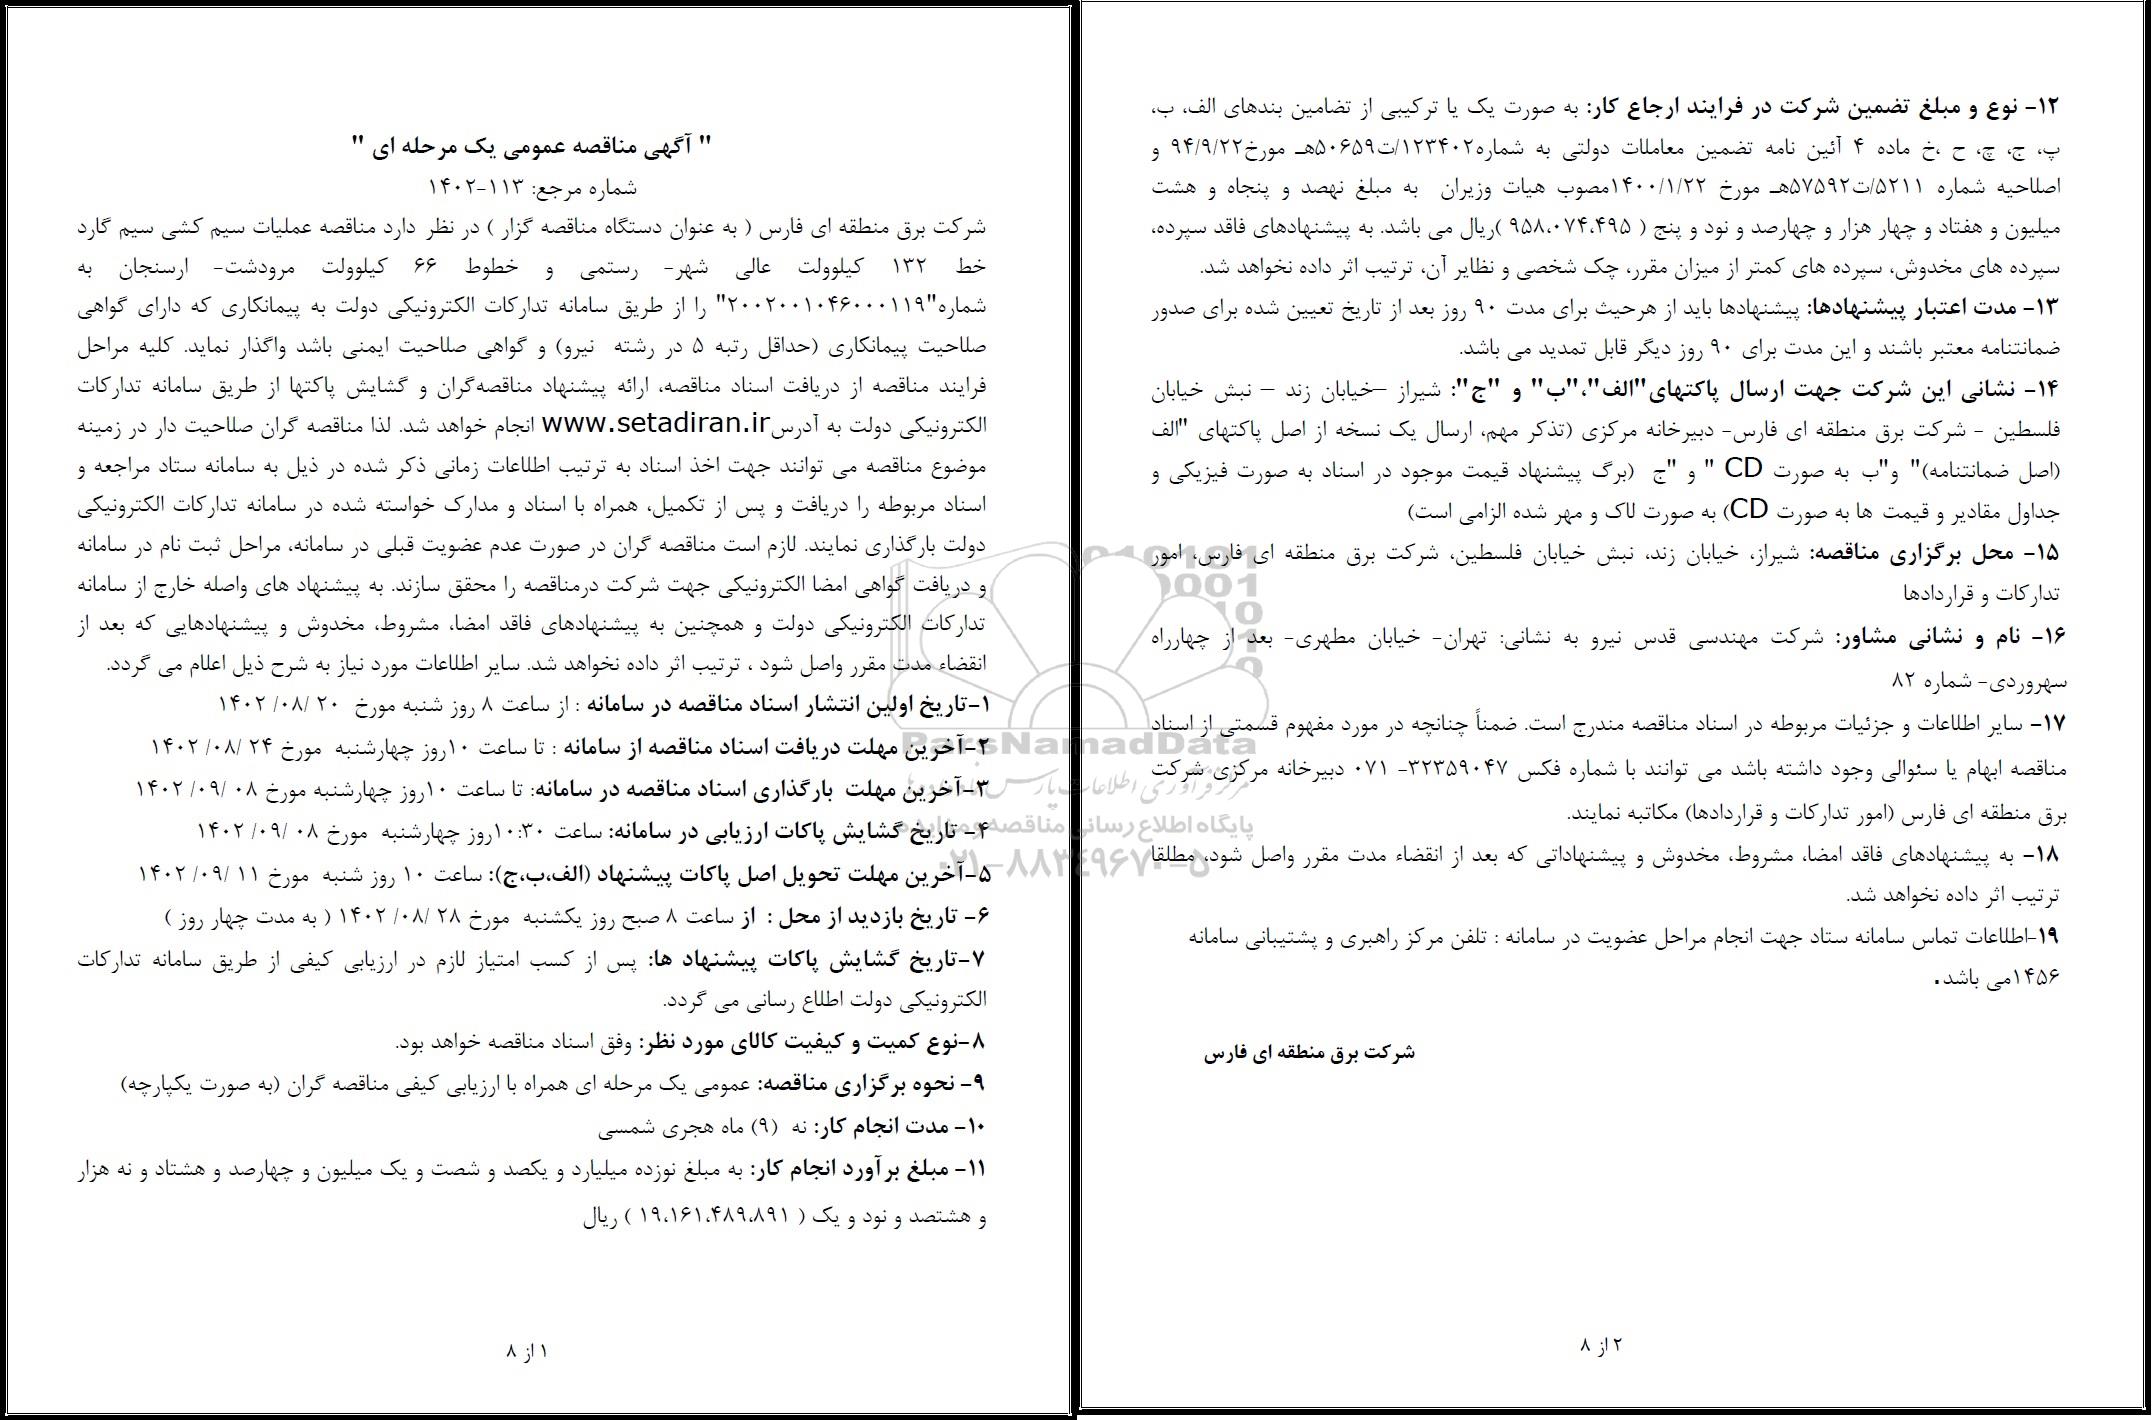 " آگهی مناقصه عمومی یک مرحله ای "
شماره مرجع: ۱۱۳-۱۴۰۲
شرکت برق منطقه ای فارس ( به عنوان دستگاه مناقصه گزار ) در نظر دارد مناقصه عملیات سیم کشی سیم گارد
خط ۱۳۲ کیلوولت عالی شهر- رستمی و خطوط ۶۶ کیلوولت مرودشت- ارسنجان به
شماره"۲۰۰۲۰۰۱۰۴۶۰۰۰۱۱۹" را از طریق سامانه تدارکات الکترونیکی دولت به پیمانکاری که دارای گواهی
صلاحیت پیمانکاری (حداقل رتبه ۵ در رشته نیرو) و گواهی صلاحیت ایمنی باشد واگذار نماید. کلیه مراحل
فرایند مناقصه از دریافت اسناد مناقصه، ارائه پیشنهاد مناقصه‌گران و گشایش پاکتها از طریق سامانه تدارکات
الکترونیکی دولت به آدرسwww.setadiran.ir انجام خواهد شد. لذا مناقصه گران صلاحیت دار در زمینه
موضوع مناقصه می توانند جهت اخذ اسناد به ترتیب اطلاعات زمانی ذکر شده در ذیل به سامانه ستاد مراجعه و
اسناد مربوطه را دریافت و پس از تکمیل، همراه با اسناد و مدارک خواسته شده در سامانه تدارکات الکترونیکی
دولت بارگذاری نمایند. لازم است مناقصه گران در صورت عدم عضویت قبلی در سامانه، مراحل ثبت نام در سامانه
و دریافت گواهی امضا الکترونیکی جهت شرکت درمناقصه را محقق سازند. به پیشنهاد های واصله خارج از سامانه
تدارکات الکترونیکی دولت و همچنین به پیشنهادهای فاقد امضا، مشروط، مخدوش و پیشنهادهایی که بعد از
انقضاء مدت مقرر واصل شود ، ترتیب اثر داده نخواهد شد. سایر اطلاعات مورد نیاز به شرح ذیل اعلام می گردد.
۱-تاریخ اولین انتشار اسناد مناقصه در سامانه : از ساعت ۸ روز شنبه مورخ ۲۰ /۰۸/ ۱۴۰۲
۲-آخرین مهلت دریافت اسناد مناقصه از سامانه : تا ساعت ۱۰روز چهارشنبه مورخ ۲۴ /۰۸/ ۱۴۰۲
۳-آخرین مهلت بارگذاری اسناد مناقصه در سامانه: تا ساعت ۱۰روز چهارشنبه مورخ ۰۸ /۰۹/ ۱۴۰۲
۴- تاریخ گشایش پاکات ارزیابی در سامانه: ساعت ۱۰:۳۰روز چهارشنبه مورخ ۰۸ /۰۹/ ۱۴۰۲
۵-آخرین مهلت تحویل اصل پاکات پیشنهاد (الف،ب،ج): ساعت ۱۰ روز شنبه مورخ ۱۱ /۰۹/ ۱۴۰۲
۶- تاریخ بازدید از محل : از ساعت ۸ صبح روز یکشنبه مورخ ۲۸ /۰۸/ ۱۴۰۲ ( به مدت چهار روز )
۷-تاریخ گشایش پاکات پیشنهاد ها: پس از کسب امتیاز لازم در ارزیابی کیفی از طریق سامانه تدارکات
الکترونیکی دولت اطلاع رسانی می گردد.
۸-نوع کمیت و کیفیت کالای مورد نظر: وفق اسناد مناقصه خواهد بود.
۹- نحوه برگزاری مناقصه: عمومی یک مرحله ای همراه با ارزیابی کیفی مناقصه گران (به صورت یکپارچه)
۱۰- مدت انجام کار: نه (۹) ماه هجری شمسی
۱۱- مبلغ برآورد انجام کار: به مبلغ نوزده میلیارد و یکصد و شصت و یک میلیون و چهارصد و هشتاد و نه هزار
و هشتصد و نود و یک ( ۱۹،۱۶۱،۴۸۹،۸۹۱ ) ریال
۱ از ۸
۱۲- نوع و مبلغ تضمین شرکت در فرایند ارجاع کار: به صورت یک یا ترکیبی از تضامین بندهای الف، ب،
پ، ج، چ، ح ،خ ماده ۴ آئین نامه تضمین معاملات دولتی به شماره۱۲۳۴۰۲/ت۵۰۶۵۹هـ مورخ۹۴/۹/۲۲ و
اصلاحیه شماره ۵۲۱۱/ت۵۷۵۹۲هـ مورخ ۱۴۰۰/۱/۲۲مصوب هیات وزیران به مبلغ نهصد و پنجاه و هشت
میلیون و هفتاد و چهار هزار و چهارصد و نود و پنج ( ۹۵۸،۰۷۴،۴۹۵ )ریال می باشد. به پیشنهادهای فاقد سپرده،
سپرده های مخدوش، سپرده های کمتر از میزان مقرر، چک شخصی و نظایر آن، ترتیب اثر داده نخواهد شد.
۱۳- مدت اعتبار پیشنهادها: پیشنهادها باید از هرحیث برای مدت ۹۰ روز بعد از تاریخ تعیین شده برای صدور
ضمانتنامه معتبر باشند و این مدت برای ۹۰ روز دیگر قابل تمدید می باشد.
۱۴- نشانی این شرکت جهت ارسال پاکتهای"الف"،"ب" و "ج": شیراز –خیابان زند – نبش خیابان
فلسطین - شرکت برق منطقه ای فارس- دبیرخانه مرکزی (تذکر مهم، ارسال یک نسخه از اصل پاکتهای "الف
(اصل ضمانتنامه)" و"ب به صورت CD " و "ج (برگ پیشنهاد قیمت موجود در اسناد به صورت فیزیکی و
جداول مقادیر و قیمت ها به صورت CD) به صورت لاک و مهر شده الزامی است)
۱۵- محل برگزاری مناقصه: شیراز، خیابان زند، نبش خیابان فلسطین، شرکت برق منطقه ای فارس، امور
تدارکات و قراردادها
۱۶- نام و نشانی مشاور: شرکت مهندسی قدس نیرو به نشانی: تهران- خیابان مطهری- بعد از چهارراه
سهروردی- شماره ۸۲
۱۷- سایر اطلاعات و جزئیات مربوطه در اسناد مناقصه مندرج است. ضمناً چنانچه در مورد مفهوم قسمتی از اسناد
مناقصه ابهام یا سئوالی وجود داشته باشد می توانند با شماره فکس ۳۲۳۵۹۰۴۷- ۰۷۱ دبیرخانه مرکزی شرکت
برق منطقه ای فارس (امور تدارکات و قراردادها) مکاتبه نمایند.
۱۸- به پیشنهادهای فاقد امضا، مشروط، مخدوش و پیشنهاداتی که بعد از انقضاء مدت مقرر واصل شود، مطلقا
ترتیب اثر داده نخواهد شد.
۱۹-اطلاعات تماس سامانه ستاد جهت انجام مراحل عضویت در سامانه : تلفن مرکز راهبری و پشتیبانی سامانه
۱۴۵۶می باشد.
شرکت برق منطقه ای فارس
۲ از ۸
ParsNamadData
پایگاه اطلاع رسانی مناقصه و مزایده
۰۲۱-۸۸۳۴۹۶۷۰-۵